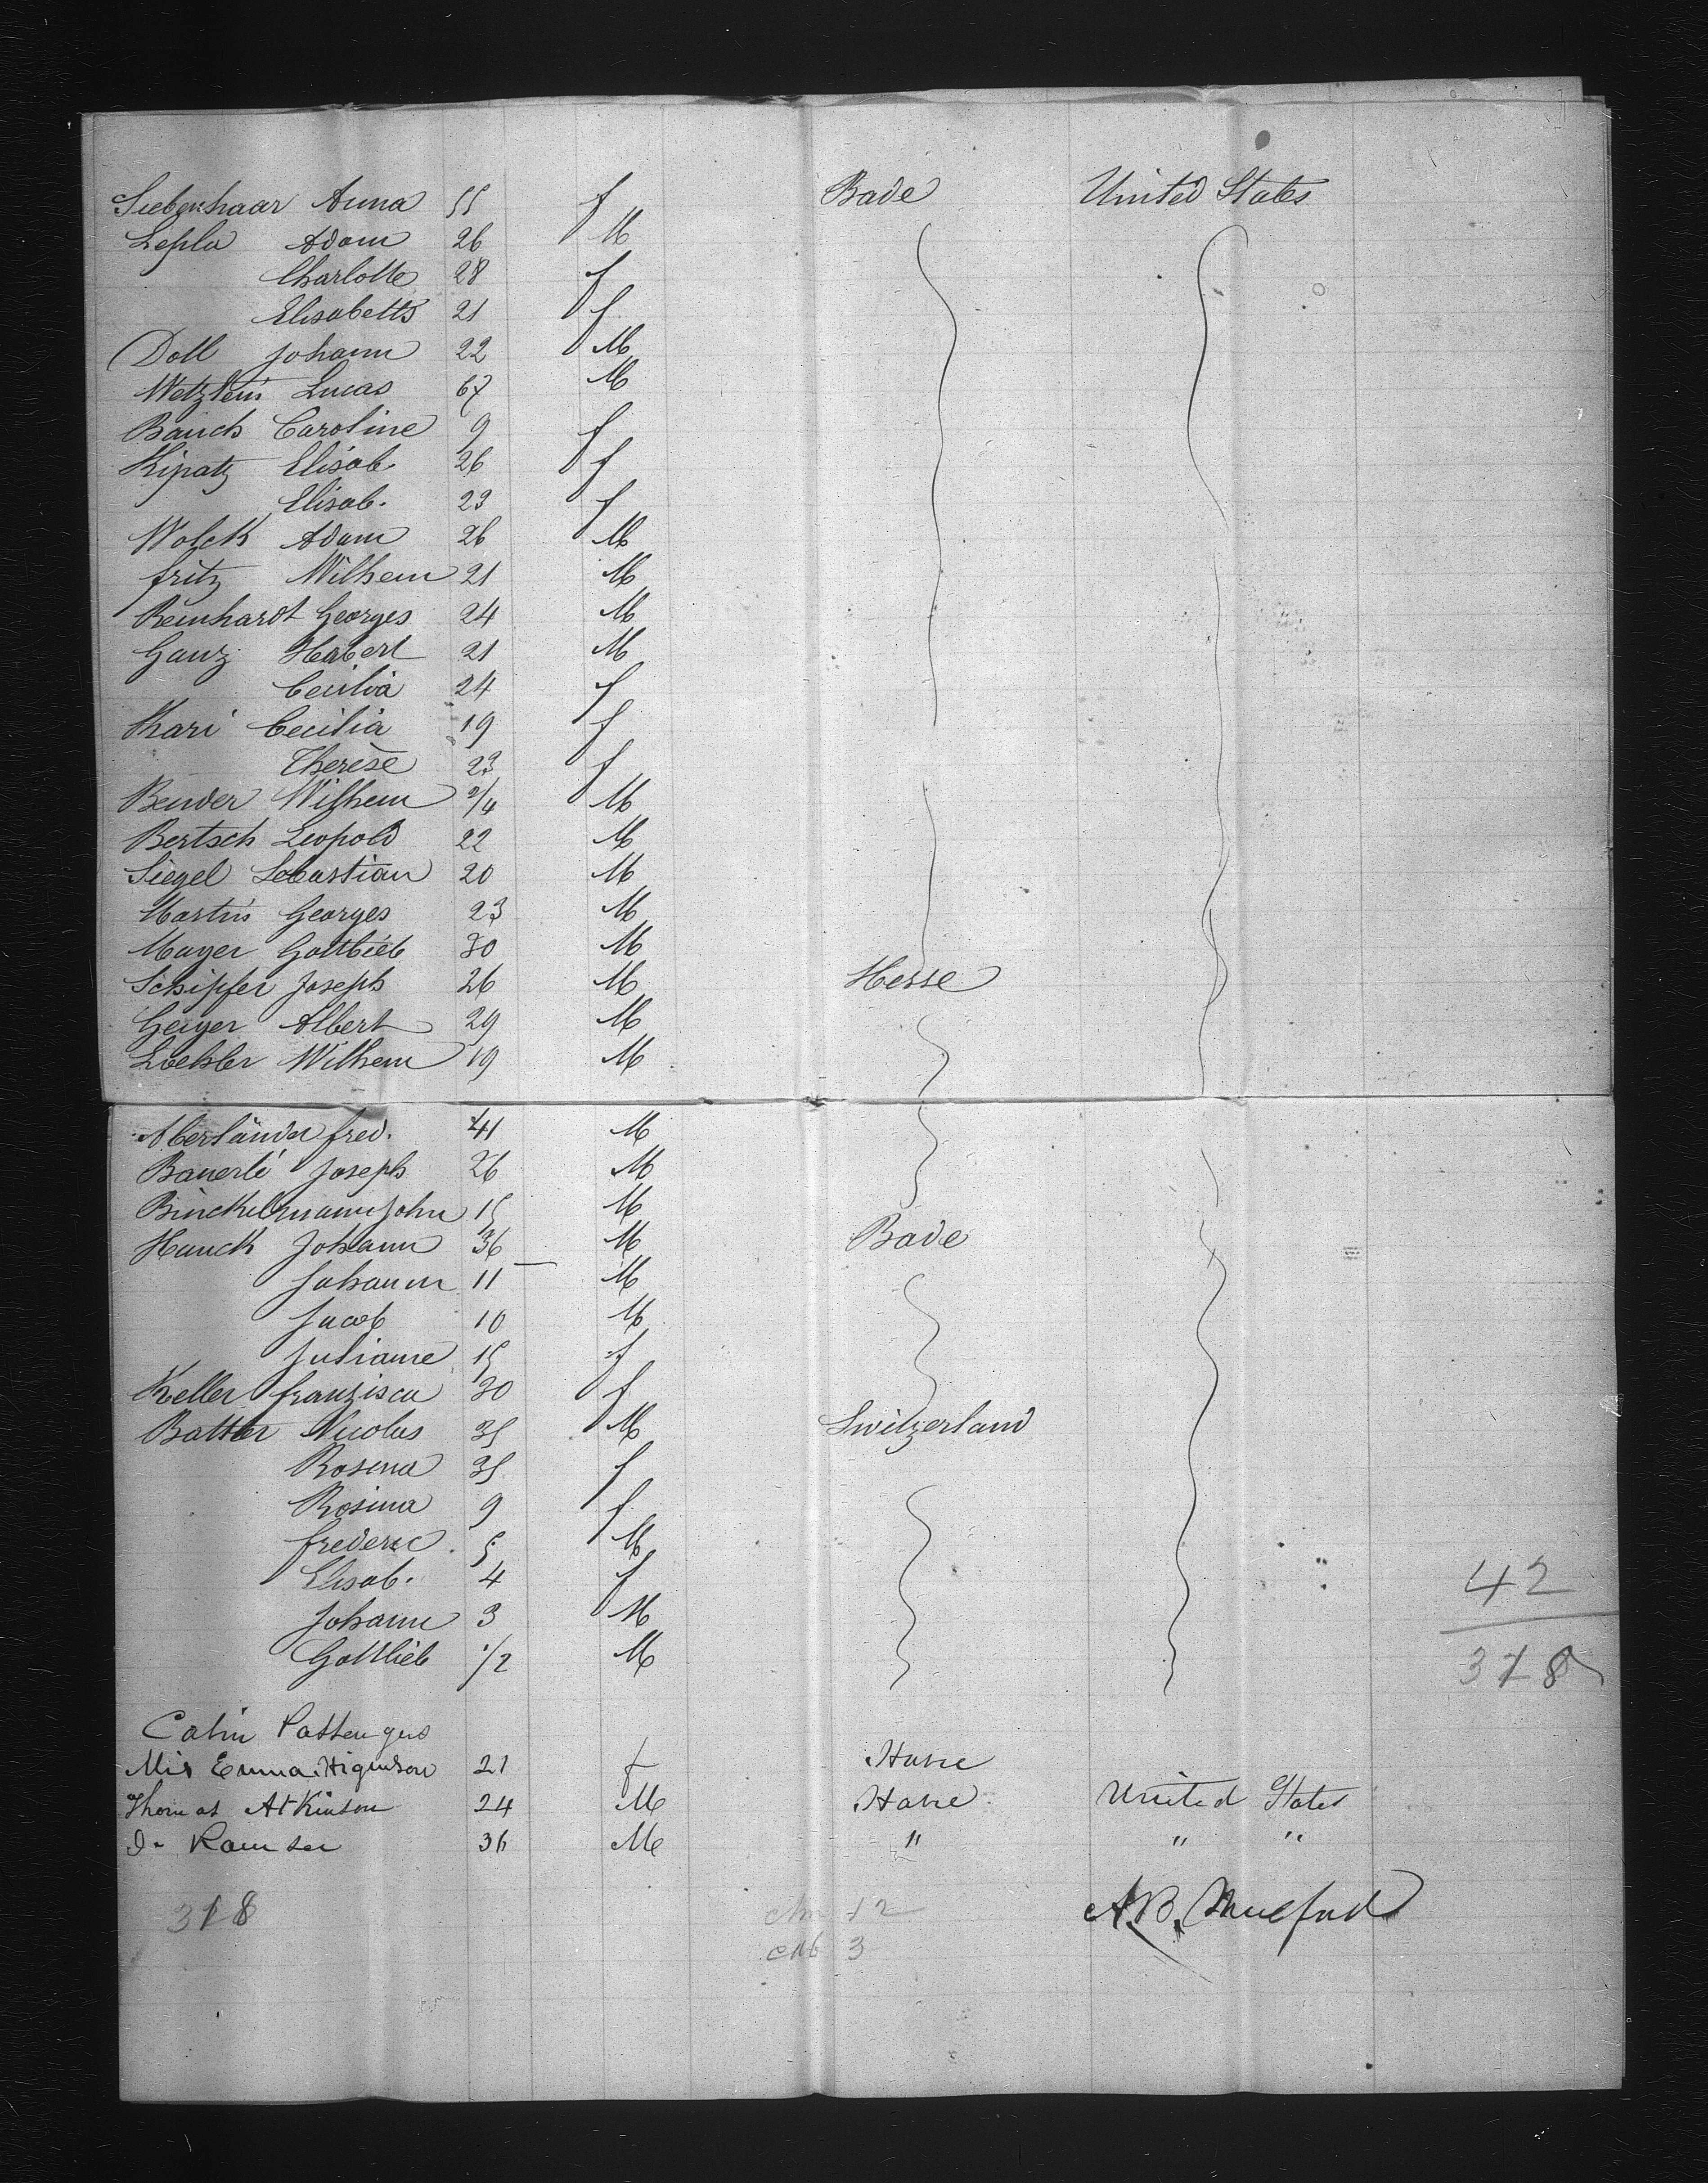 Siebenhaar Anna 55 f Bade United States
Lepla Adam 26 M
Charlotte 28 f
Elisabetts 21 f
Doll Johann 22 M
Wetzlein Lucas 67 M
Bauch Caroline 9 f
Kipatz Elisab. 26 f
Elisab. 23 f
Wolck Adam 26 M
fritz Wilhem 21 M
Reinhardt Georges 24 M
Ganz Hebert 21 M
Cecilia 24 f
Kari Cecilia 19 f
Therèse 23 f
Bender Wilhem M
Bertsch Leopold 22 M
Siegel Sebastian 20 M
Martin Georges 23 M
Mayer Gottlieb 30 M
Schipfer Joseph 26 M Hesse
Geiger Albert 29 M
Wilhem 19 M
Aberländer fred. 41 M
Bauerlé Joseph 26 M
Binckelmann John 15 M
Hauck Johann 36 M Bade
Johann 11 M
Jacob 10 M
Juliane 15 f
Keller franzisca 30 f
Batter Nicolas 35 M Switzerland
Rosina 35 f
Rosina 9 f
frederic 5 M
Elisab. 4 f
Johann 3 M
Gottlieb 1/2 M
42
318
Cabin Passengers
Mis Emma Higinson 21 f Havre
Thomas Atkinson 24 M Havre United States
36 M " " "
318
12
3
A.B. Mulford